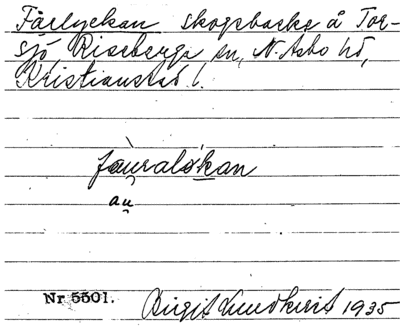 Fårlyckan skogsbacke å Tor-
sjö Riseberga sn, N. Åsbo hd,
Kristianstad l.
fauralökan
au
Nr 5501. Birgit Lundkvist 1935